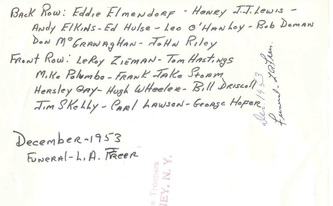 Back Row: Eddie Elmendorf - Henry J.J. Lewis -
Andy Elkins - Ed Hulse - Leo O'Hanley - Bob Doman
Don McGranaghan - John Riley
Front Row: LeRoy Zieman - Tom Hastings
Mike Palumbo - Frank Jake Storm
Hersley Gay - Hugh Wheeler - Bill Driscoll
Jim Skelly - Carl Lawson - George Hofer
December - 1953
Funeral - L.A.
Dec 1953
NEY, N.Y.